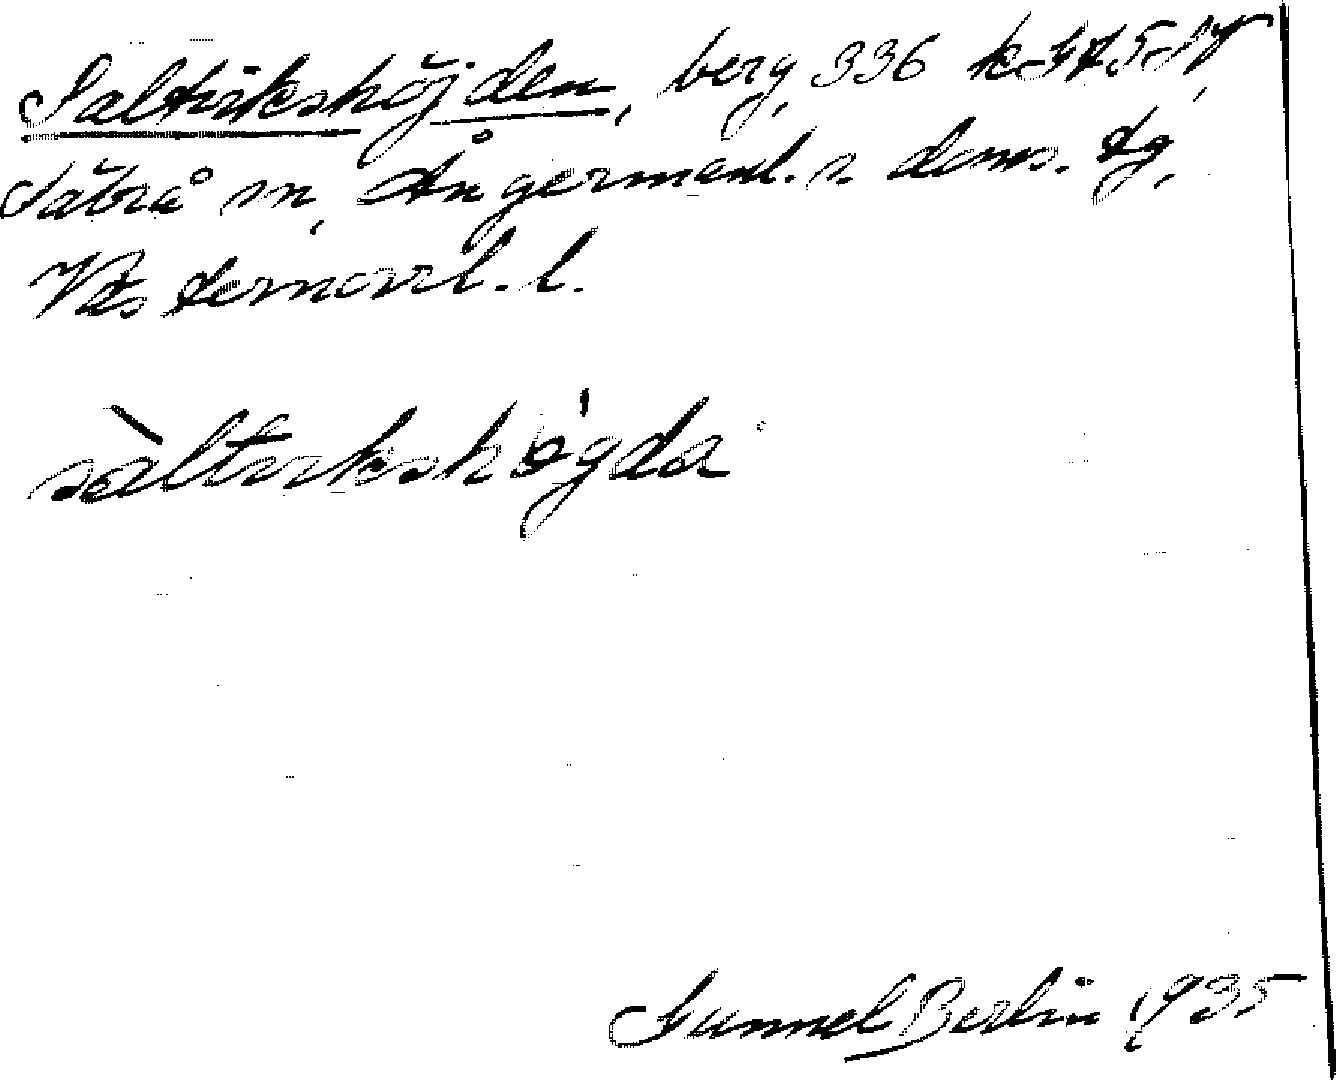 Saltvikshöjden, berg, 336
Säbrå sn, Ångermanl. s. doms. tg,
Västernorrl. l.
sàltvikshø̀gda
Gunnel Berlin 1935